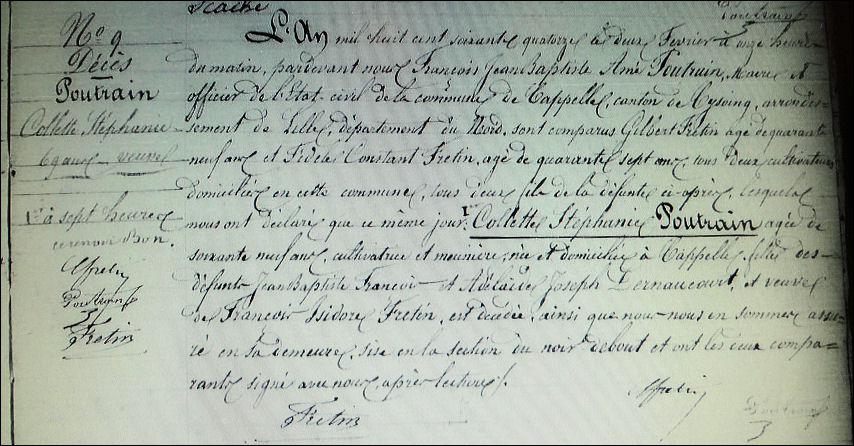 N° 9
Décès
Poutrain
Collette, Stéphanie
69 ans veuve
1r à sept heures
ce renvoi Bon.
Poutrain
Fretin
L'An mil huit cent soixante quatorze le deux Février à onze heures
du matin, pardevant nous François Jean Baptiste Aimé Poutrain, Maire et
officier de l'Etat-civil de la commune de Cappelle, canton de Cysoing, arrondis-
sement de Lille, département du Nord, sont comparus Gilbert Fretin agé de quarante
neuf ans et Fidèle Constant Fretin, agé de quarante sept ans, tous deux cultivateurs
domiciliés en cette commune, tous deux fils de la défunte ci-après, lesquels
nous ont déclaré que ce même jour 1r Collette Stéphanie Poutrain agée de
soixante neuf ans, cultivatrice et meunière, née et domiciliée à Cappelle, fille des
défunts Jean Baptiste François et Adélaïde Joseph Dernaucourt, et veuve
de François Isidore Fretin, est décédée, ainsi que nous nous en sommes assu-
ré en sa demeure, sise en la section du noir debout et ont les deux compa-
rants signé avec nous après lecture.
Fretin
Poutrain